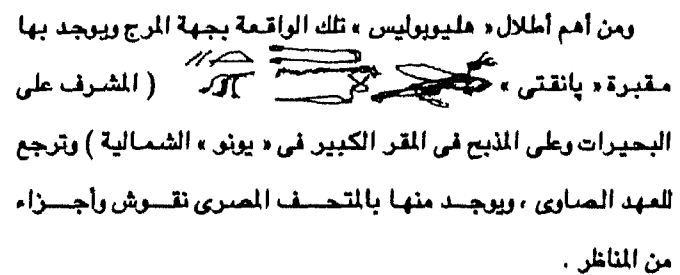 ومن أهم أطلال « هليوبوليس » تلك الواقعة بجهة المرج ويوجد بها
مقبرة « پانقتى » ( المشرف على
البحيرات وعلى المذبح فى المقر الكبير فى « يونو » الشمالية ) وترجع
للعهد الصاوى ، ويوجد منها بالمتحف المصرى نقوش وأجزاء
من المناظر .